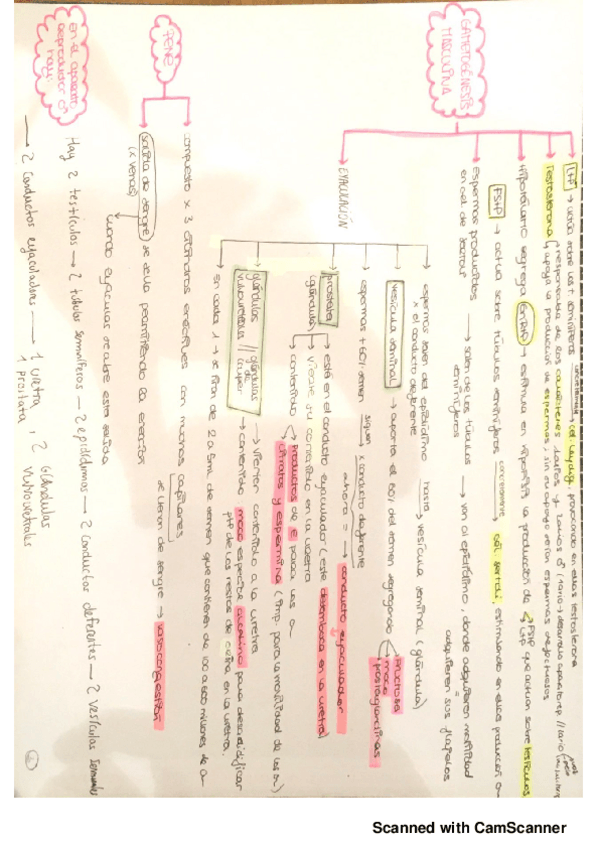 GAMETOGÉNESIS
MASCULINA
LH → actúa sobre los t. seminíferos concretamente → cel. Leydig, provocando en ellas testosterona
Testosterona responsable de los caracteres
apoya la producción de espermas, sin su apoyo serían espermas defectuosos
Hipotálamo segrega GnRH → estimula en hipófisis la producción de FSH LSH que actúan sobre testículos
FSH → actúa sobre túbulos seminíferos concretamente → cél. sertoli, estimulando en ellas producción
espermas producidos
en cel de sertoli
→ salen de los túbulos
seminíferos
→ van al epidídimo, donde adquieren motilidad
adquieren sus flagelos
EYACULACIÓN
espermas salen del epidídimo
x el conducto deferente
hasta → vesícula seminal (glándula)
vesícula seminal → aporta el 60% del semen segregando
fructosa
moco
prostaglandinas
espermas + 60% semen siguen → x conducto deferente
ahora = → conducto eyaculador
próstata
(glándula)
está en el conducto eyaculador (este desemboca en la uretra)
vierte su contenido en la uretra
contenido
productos de E para los
citratos y espermina (imp. para la motilidad de los)
glándulas
vulvouretrales // glándulas
de
cowper
vierten contenido a la uretra
contenido moco espeso alcalino para desacidificar
pH de los restos de orina en la uretra.
en cada 1 → se tiran de 2 a 5mL de semen que contienen de 100 a 600 millones de
PENE
compuesto x 3 cilindros eréctiles con muchos capilares
se llenan de sangre → vasocongestión
salida de sangre
(x venas)
se cierra permitiendo la erección
cuando eyaculas se abre esta salida
en el aparato
reproductor ♂
hay:
Hay 2 testículos → 2 túbulos seminíferos → 2 epidídimos → 2 conductos deferentes → 2 vesículas seminales
→ 2 conductos eyaculadores → 1 uretra, 2 Glándulas
1 próstata vulvouretrales
Scanned with CamScanner